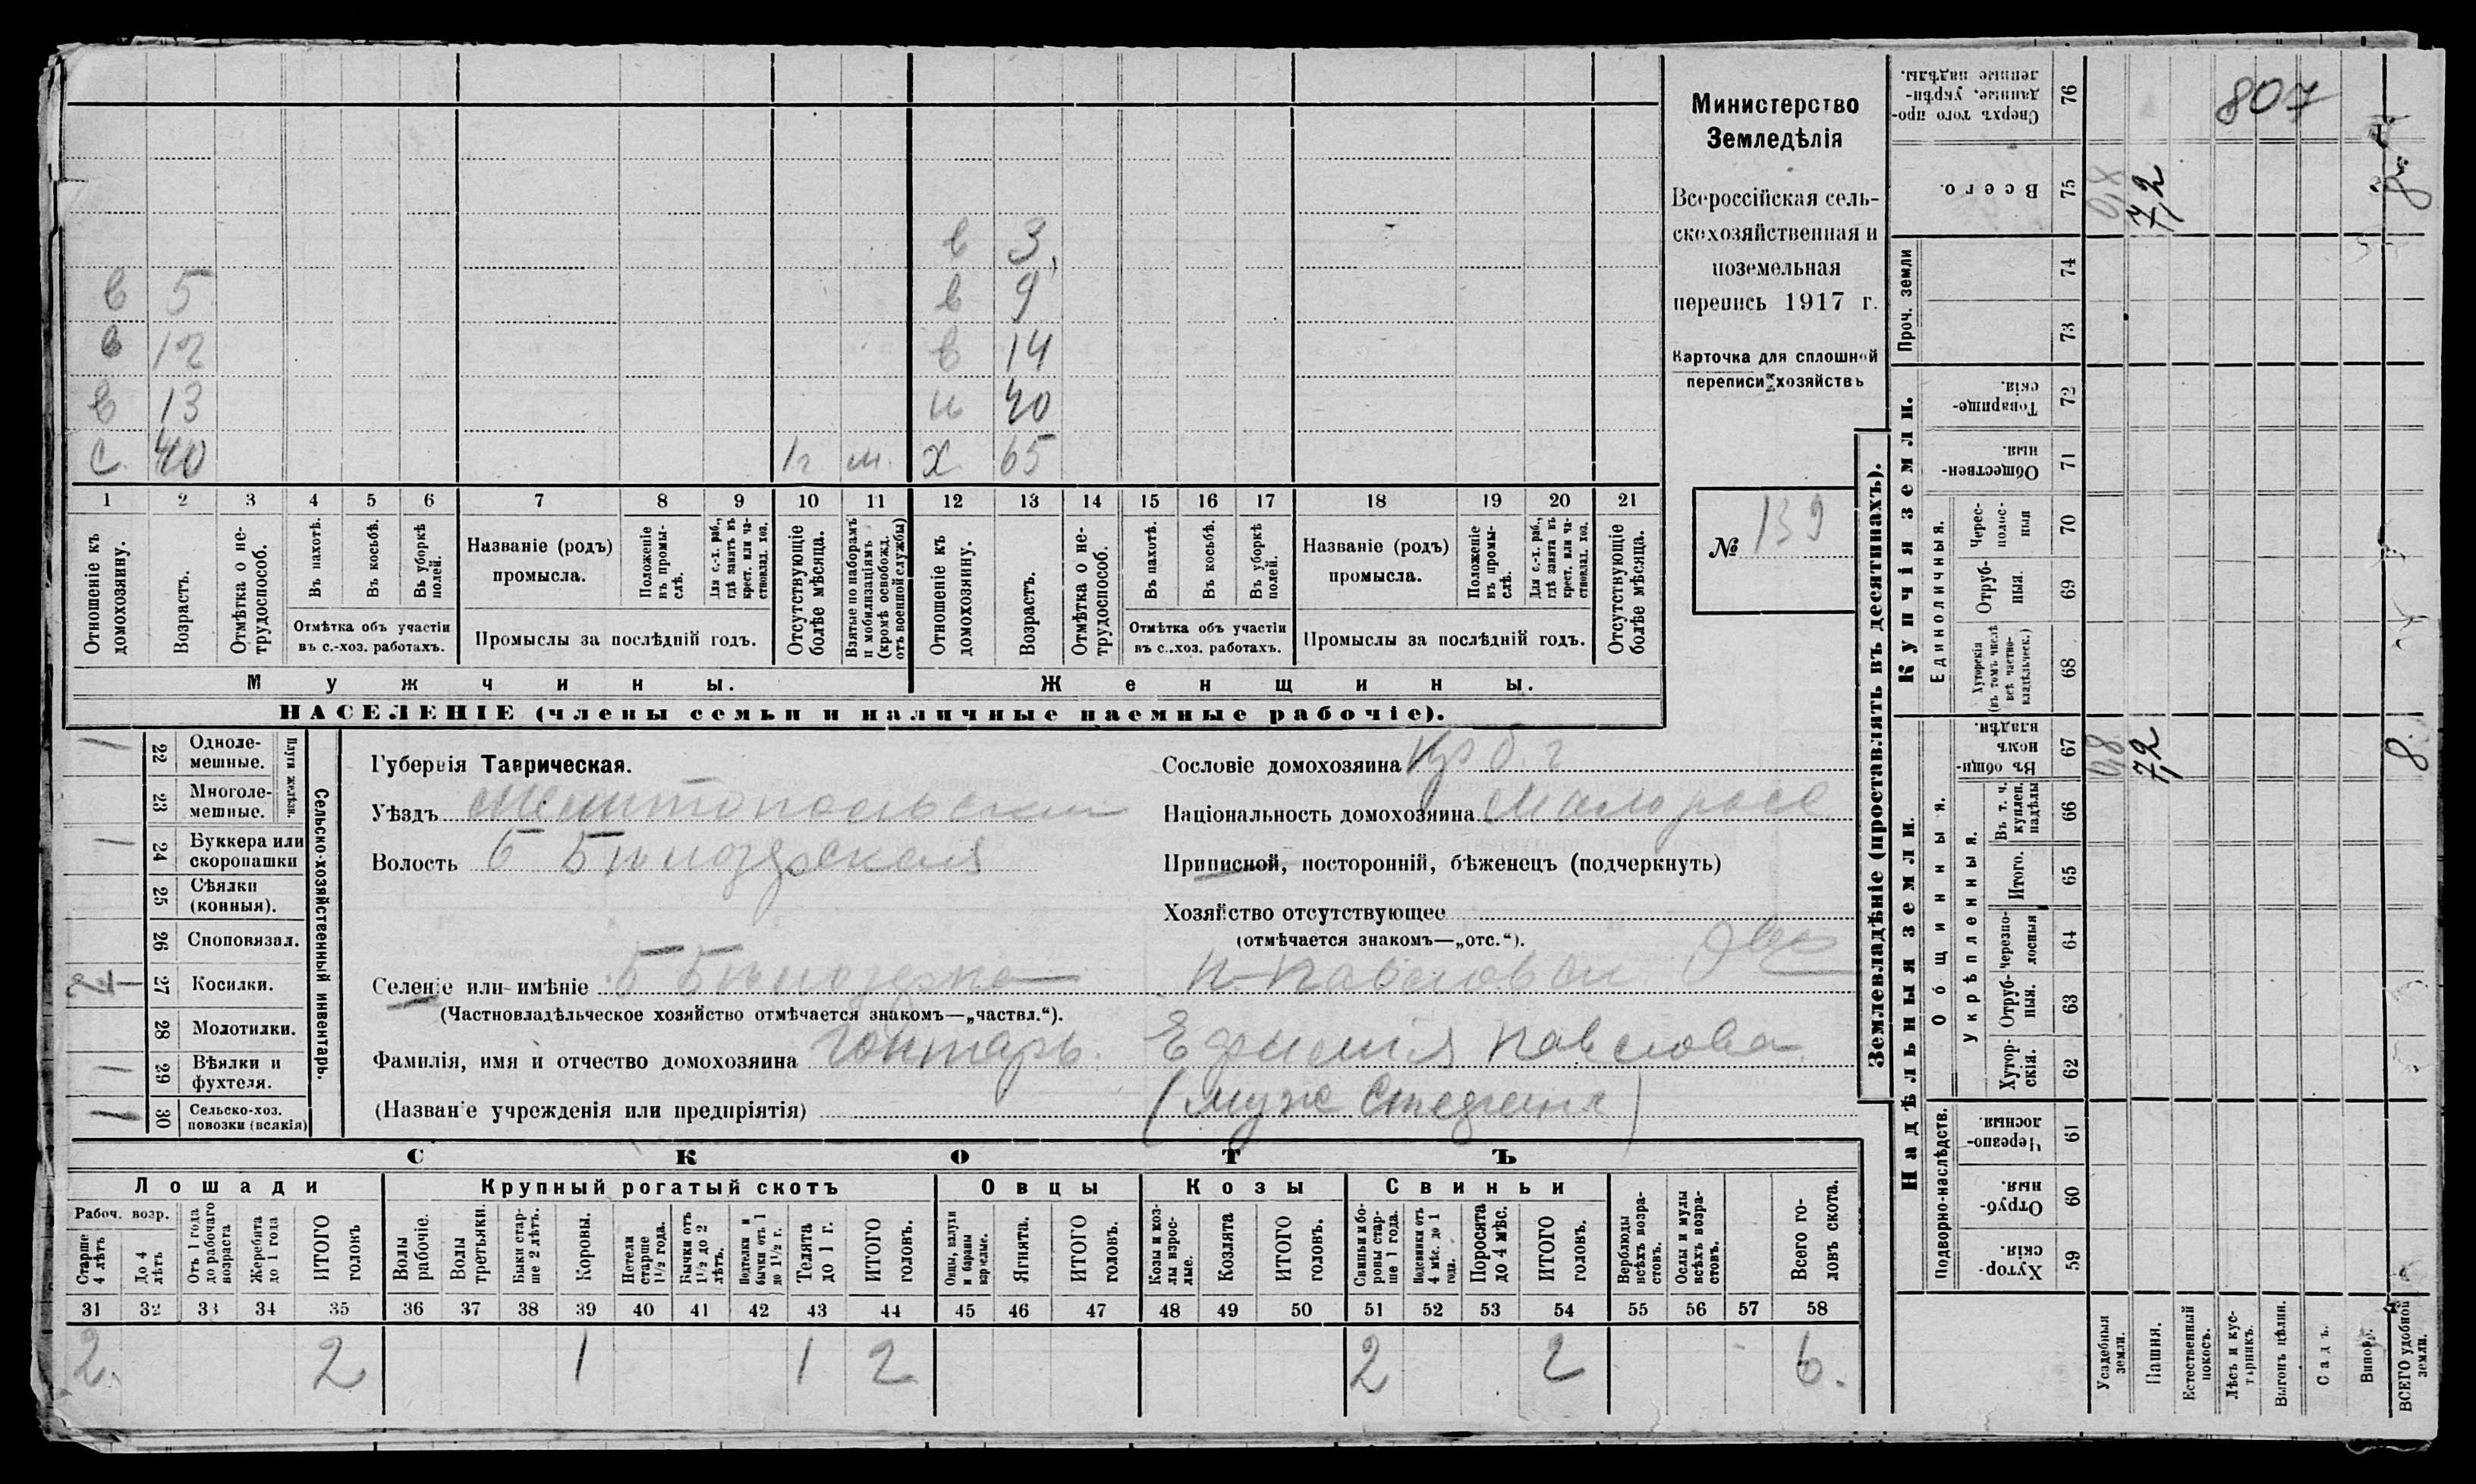 807
Министерство
Земледѣлія
Всероссійская сель-
скохозяйственная и
поземельная
перепись 1917 г.
Карточка для сплошной
переписи хозяйствъ
№ 139
в 3
в 5 в 9
в 12 в 14
в 13 н 40
с 40 1 г м. х 65
1 2 3 4 5 6 7 8 9 10 11 12 13 14 15 16 17 18 19 20 21
Отношеніе къ домохозяину.
Возрастъ.
Отмѣтка о не-трудоспособ.
Въ пахотѣ.
Въ косьбѣ.
Въ уборкѣ полей.
Отмѣтка объ участіи
въ с.-хоз. работахъ.
Названіе (родъ)
промысла.
Положеніе въ промы-слѣ.
Для с.-х. раб., гдѣ занятъ въ крест. или ча-стновлад. хоз.
Промыслы за послѣдній годъ.
Отсутствующіе болѣе мѣсяца.
Взятые по наборамъ и мобилизаціямъ (кромѣ освобожд. отъ военной службы)
Отношеніе къ домохозяину.
Возрастъ.
Отмѣтка о не-трудоспособ.
Въ пахотѣ.
Въ косьбѣ.
Въ уборкѣ полей.
Отмѣтка объ участіи
въ с..хоз. работахъ.
Названіе (родъ)
промысла.
Положеніе въ промы-слѣ.
Для с.-х. раб., гдѣ занята въ крест. или ча-стновлад. хоз.
Промыслы за послѣдній годъ.
Отсутствующіе болѣе мѣсяца.
Мужчины. Женщины.
НАСЕЛЕНІЕ (члены семьи и наличные наемные рабочіе).
Сельско-хозяйственный инвентарь.
Плуги желѣзн.
1 22 Одноле-мешные.
23 Многоле-мешные.
1 24 Буккера или скоропашки
25 Сѣялки (конныя).
26 Сноповязал.
27 Косилки.
28 Молотилки.
1 29 Вѣялки и фухтеля.
1 30 Сельско-хоз. повозки (всякія)
Губернія Таврическая.
Уѣздъ Мелитопольский
Волость Б Білозерская
Селеніе или имѣніе Б Білозерка
(Частновладѣльческое хозяйство отмѣчается знакомъ—„частвл.“).
Фамилія, имя и отчество домохозяина Гонтарь Ефимія Павлова
(Названіе учрежденія или предпріятія) (муж Стефанъ)
Сословіе домохозяина кр б. г
Національность домохозяина Малоросс
Приписной, посторонній, бѣженецъ (подчеркнуть)
Хозяйство отсутствующее
(отмѣчается знакомъ—„отс.“).
СКОТЪ
Лошади Крупный рогатый скотъ Овцы Козы Свиньи
Рабоч. возр.
Старше 4 лѣтъ
До 4 лѣтъ
Отъ 1 года до рабочаго возраста
Жеребята до 1 года
ИТОГО головъ
Волы рабочіе.
Волы третьяки.
Быки стар-ше 2 лѣтъ.
Коровы.
Нетели старше 1½ года.
Бычки отъ 1½ до 2 лѣтъ.
Подтелки и бычки отъ 1 до 1½ г.
Телята до 1 г.
ИТОГО головъ.
Овцы, валухи и бараны взрослые.
Ягнята.
ИТОГО головъ.
Козы и коз-лы взрос-лые.
Козлята
ИТОГО головъ.
Свиньи и бо-ровы стар-ше 1 года.
Подсвинки отъ 4 мѣс. до 1 года.
Поросята до 4 мѣс.
ИТОГО головъ.
Верблюды всѣхъ возра-стовъ.
Ослы и мулы всѣхъ возра-стовъ.
Всего го-ловъ скота.
31 32 33 34 35 36 37 38 39 40 41 42 43 44 45 46 47 48 49 50 51 52 53 54 55 56 57 58
2. 2 1 1 2 2 2 6.
Землевладѣніе (проставлять въ десятинахъ).
Надѣльныя земли. Купчія земли. Проч. земли
Подворно-наслѣдств. Общинныя. Единоличныя.
Укрѣпленныя.
Хутор-скія. 59
Отруб-ныя. 60
Черезпо-лосныя 61
Хутор-скія. 62
Отруб-ныя. 63
Черезпо-лосныя 64
Итого. 65
Въ т. ч. куплен. надѣлы 66
Въ общи-номъ владѣн. 67
Хуторскія (въ томъ числѣ всѣ частно-владѣльческ.) 68
Отруб-ныя. 69
Черес-полос-ныя 70
Обществен-ныя. 71
Товарище-скія. 72
73
74
Всего. 75
Сверхъ того про-данные, укрѣп-ленные надѣлы. 76
Усадебныя земли. 0,8 0,8
Пашня. 7,2 7,2
Естественный покосъ.
Лѣсъ и кус-тарникъ.
Выгонъ цѣлин.
Садъ.
Виногр.
ВСЕГО удобной земли. 8 8